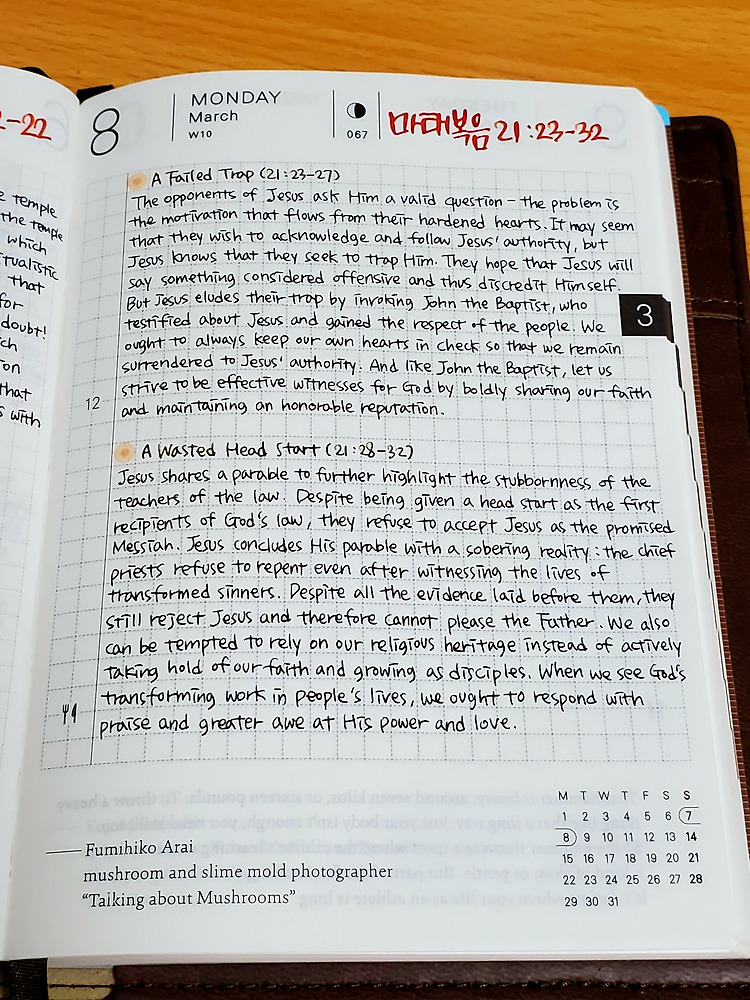 2-22
e temple
the temple
which
tualistic
that
for
doubt!
ch
ion
that
s with
8
MONDAY
March
W10
067
마태복음 21:23-32
A Failed Trap (21:23-27)
The opponents of Jesus ask Him a valid question - the problem is
the motivation that flows from their hardened hearts. It may seem
that they wish to acknowledge and follow Jesus' authority, but
Jesus knows that they seek to trap Him. They hope that Jesus will
say something considered offensive and thus discredit Himself.
But Jesus eludes their trap by invoking John the Baptist, who
testified about Jesus and gained the respect of the people. We
ought to always keep our own hearts in check so that we remain
surrendered to Jesus' authority. And like John the Baptist, let us
strive to be effective witnesses for God by boldly sharing our faith
and maintaining an honorable reputation.
3
12
A Wasted Head Start (21:28-32)
Jesus shares a parable to further highlight the stubbornness of the
teachers of the law. Despite being given a head start as the first
recipients of God's law, they refuse to accept Jesus as the promised
Messiah. Jesus concludes His parable with a sobering reality: the chief
priests refuse to repent even after witnessing the lives of
transformed sinners. Despite all the evidence laid before them, they
still reject Jesus and therefore cannot please the Father. We also
can be tempted to rely on our religious heritage instead of actively
taking hold of our faith and growing as disciples. When we see God's
transforming work in people's lives, we ought to respond with
praise and greater awe at His power and love.
Fumihiko Arai
mushroom and slime mold photographer
"Talking about Mushrooms"
M T W T F S S
1 2 3 4 5 6 7
8 9 10 11 12 13 14
15 16 17 18 19 20 21
22 23 24 25 26 27 28
29 30 31